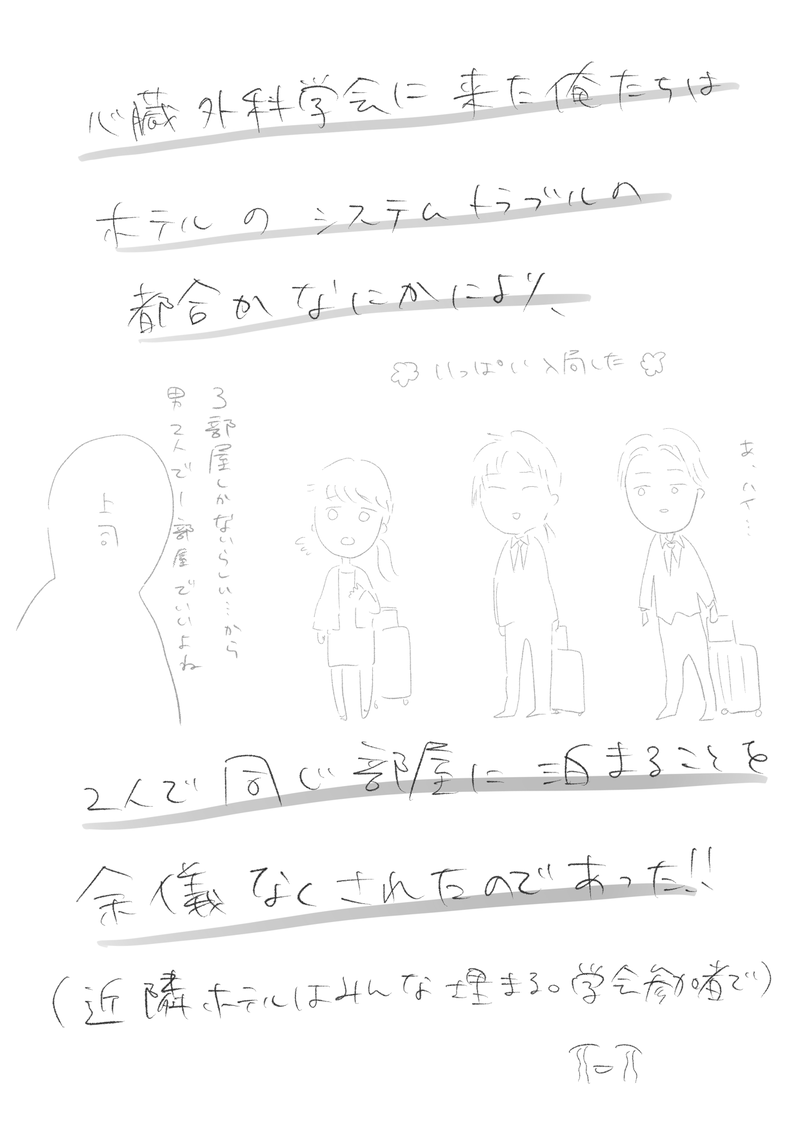 心臓外科学会に来た俺たちは
ホテルのシステムトラブルの
都合かなにかにより、
いっぱい入局した
あ、ハイ…
3部屋しかないらしい…から
男2人で1部屋でいいよね
上司
2人で同じ部屋に泊まることを
余儀なくされたのであった!!
(近隣ホテルはみんな埋まる。学会参加者で)